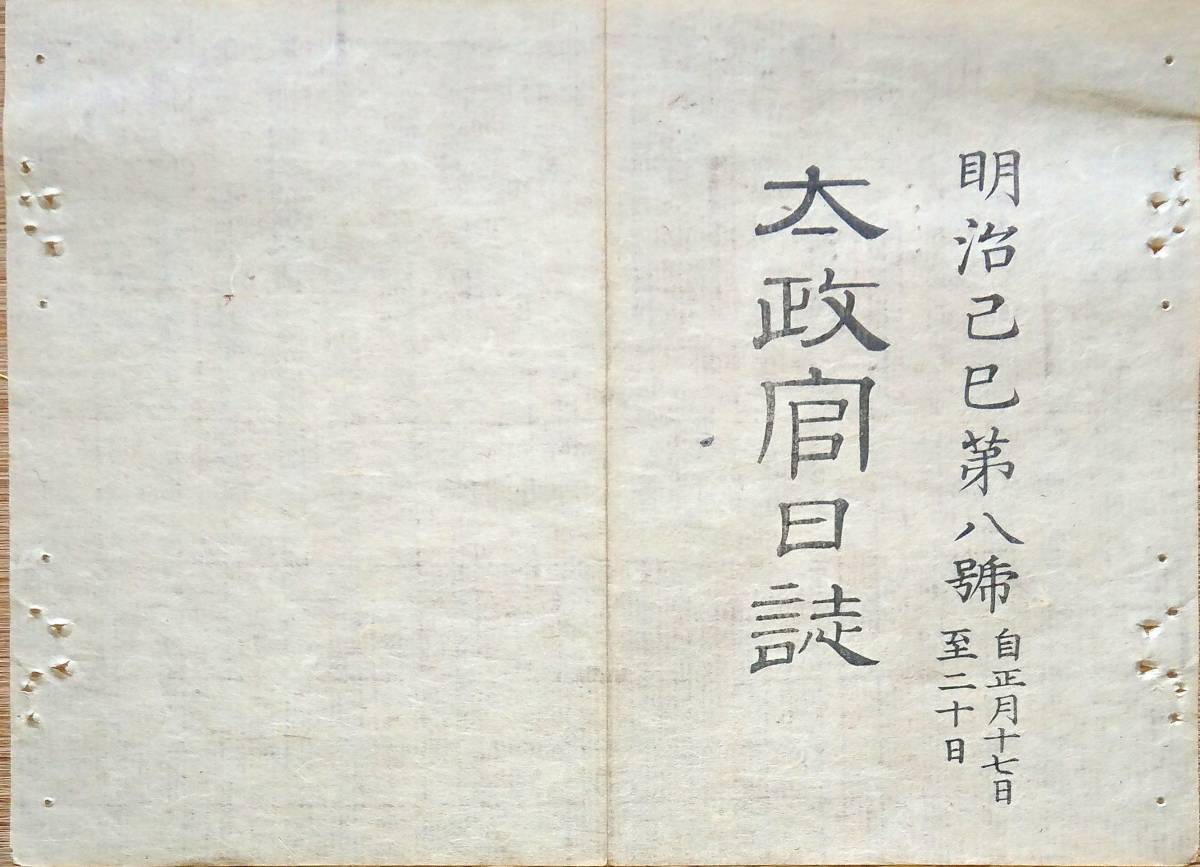 明治己巳第八號
自正月十七日
至二十日
太政官日誌